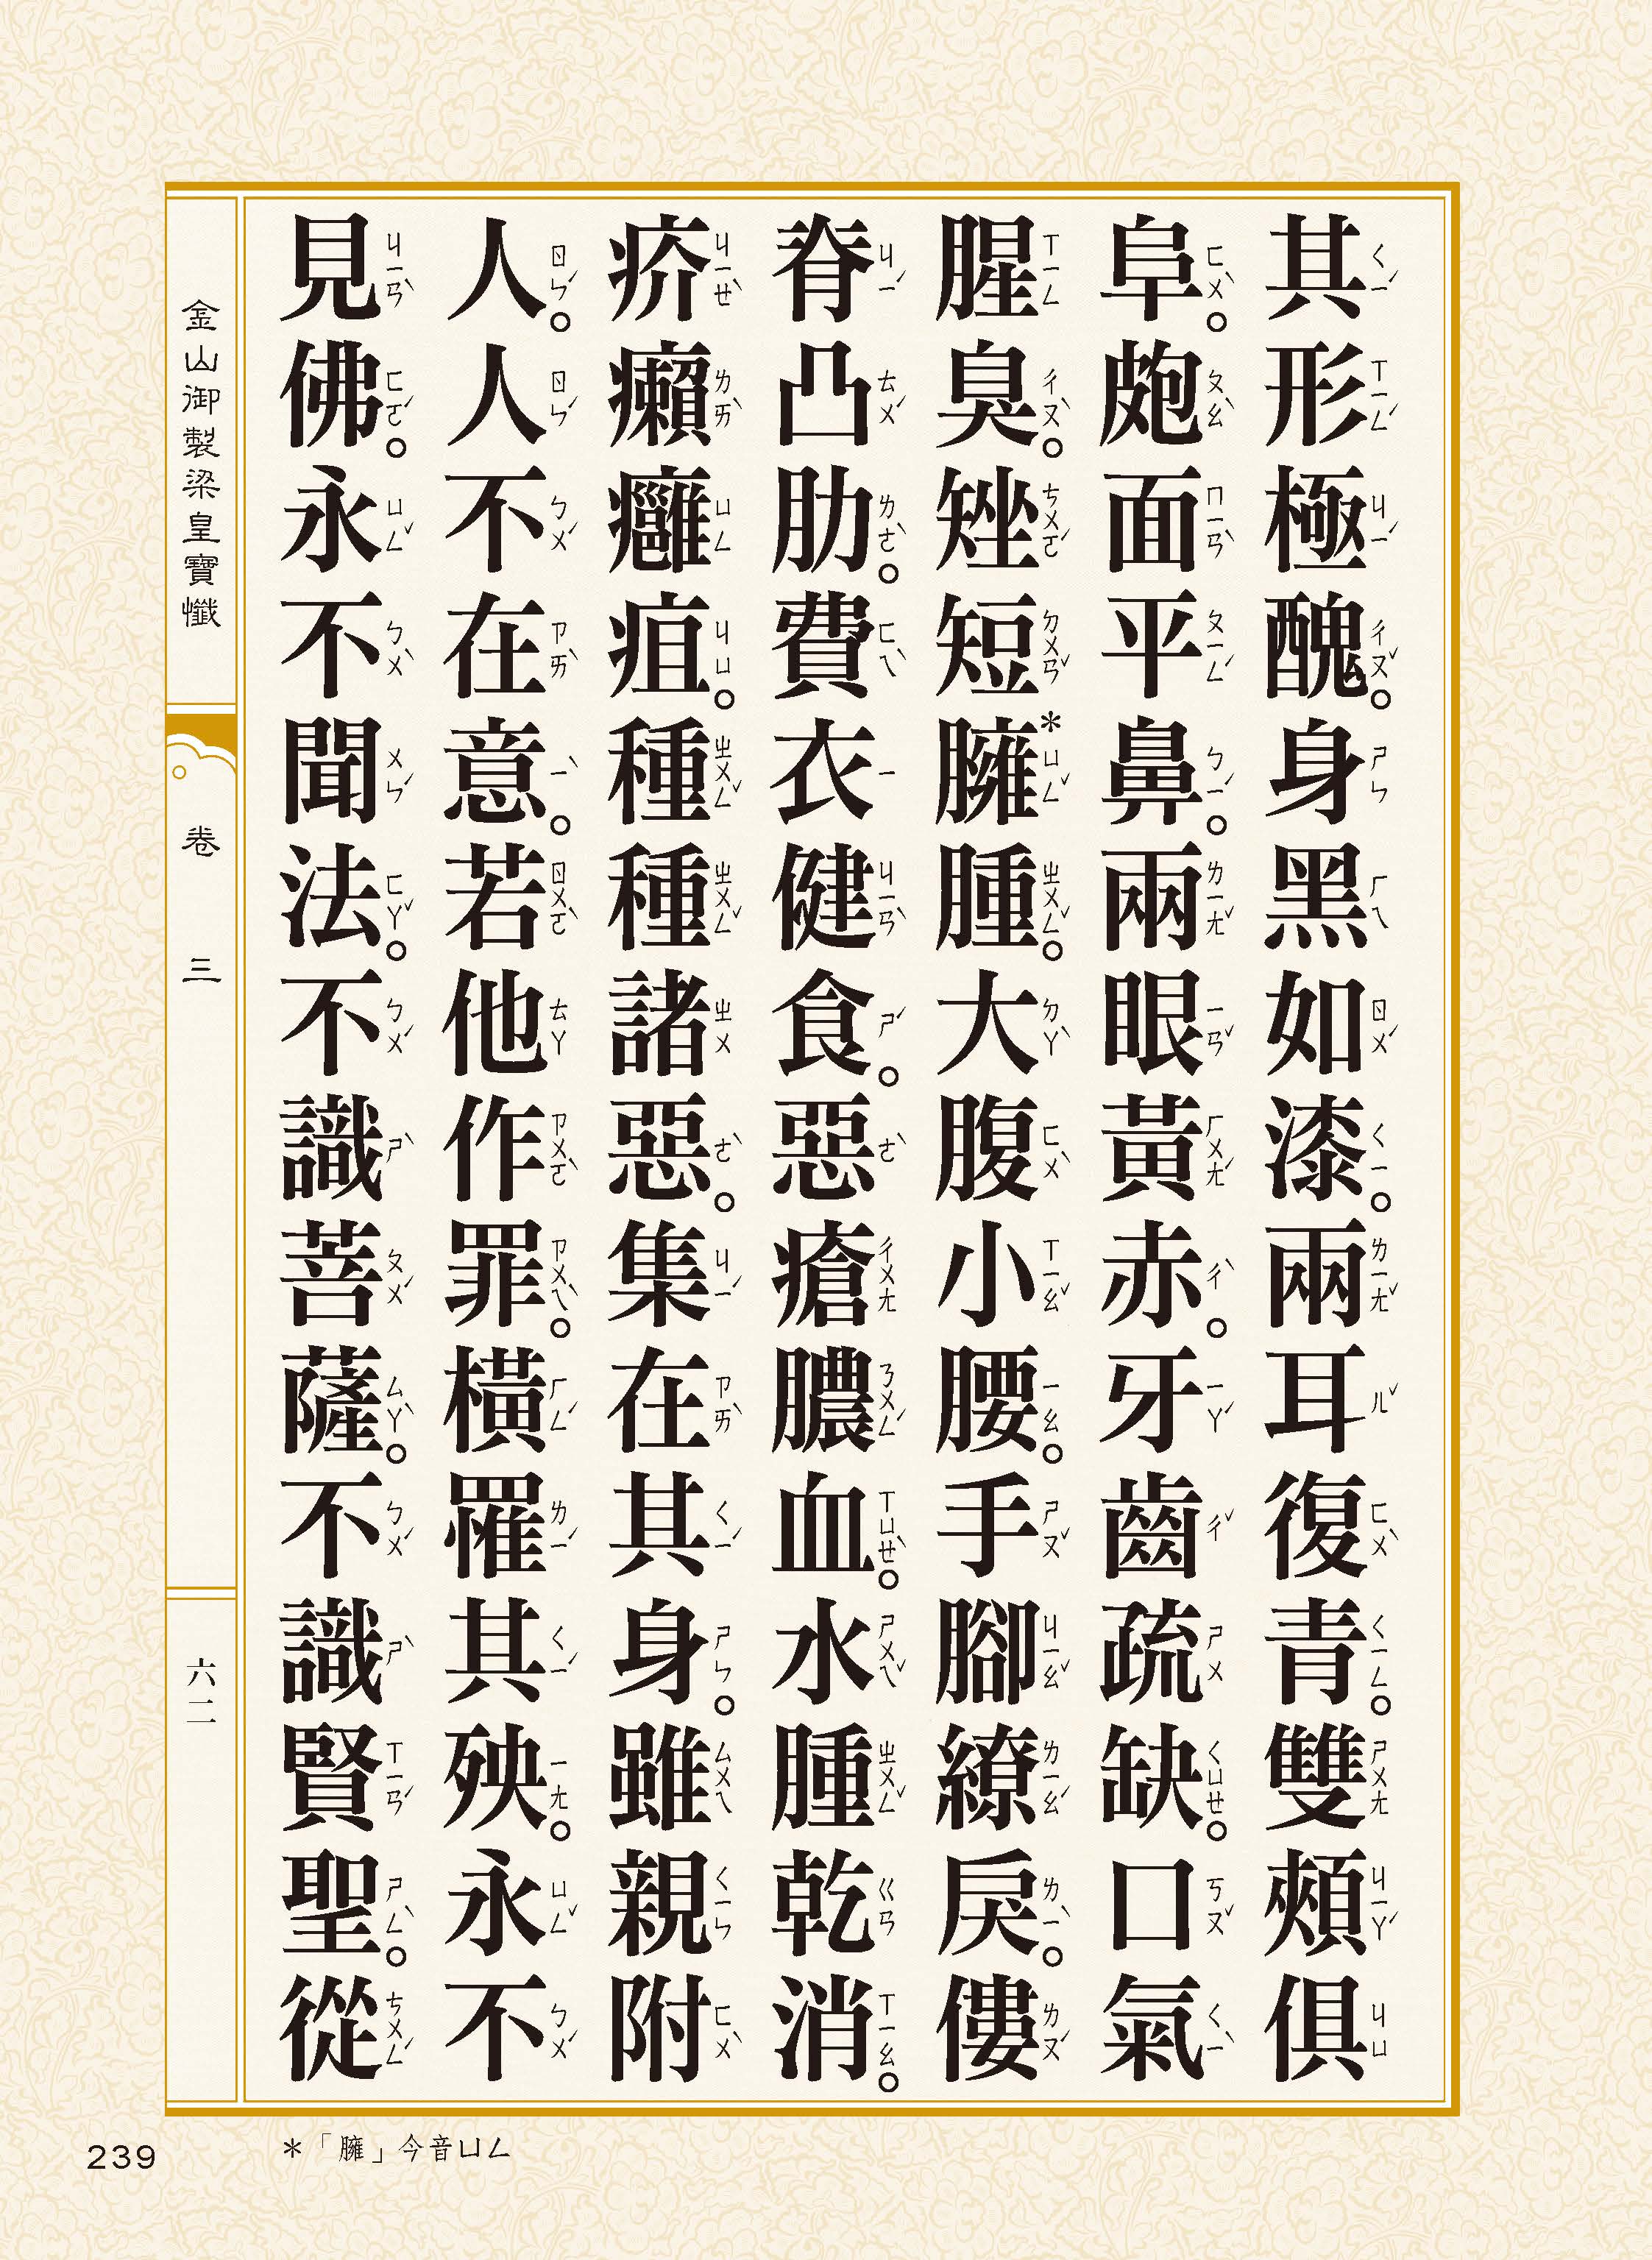 其形極醜。身黑如漆。兩耳復青。雙頰俱
阜。皰面平鼻。兩眼黃赤。牙齒疏缺。口氣
腥臭。矬短臃腫。大腹小腰。手腳繚戾。僂
脊凸肋。費衣健食。惡瘡膿血。水腫乾消。
疥癩癰疽。種種諸惡。集在其身。雖親附
人。人不在意。若他作罪。橫罹其殃。永不
見佛。永不聞法。不識菩薩。不識賢聖。從
金山御製梁皇寶懺
卷三
六二
239
＊「臃」今音ㄩㄥ